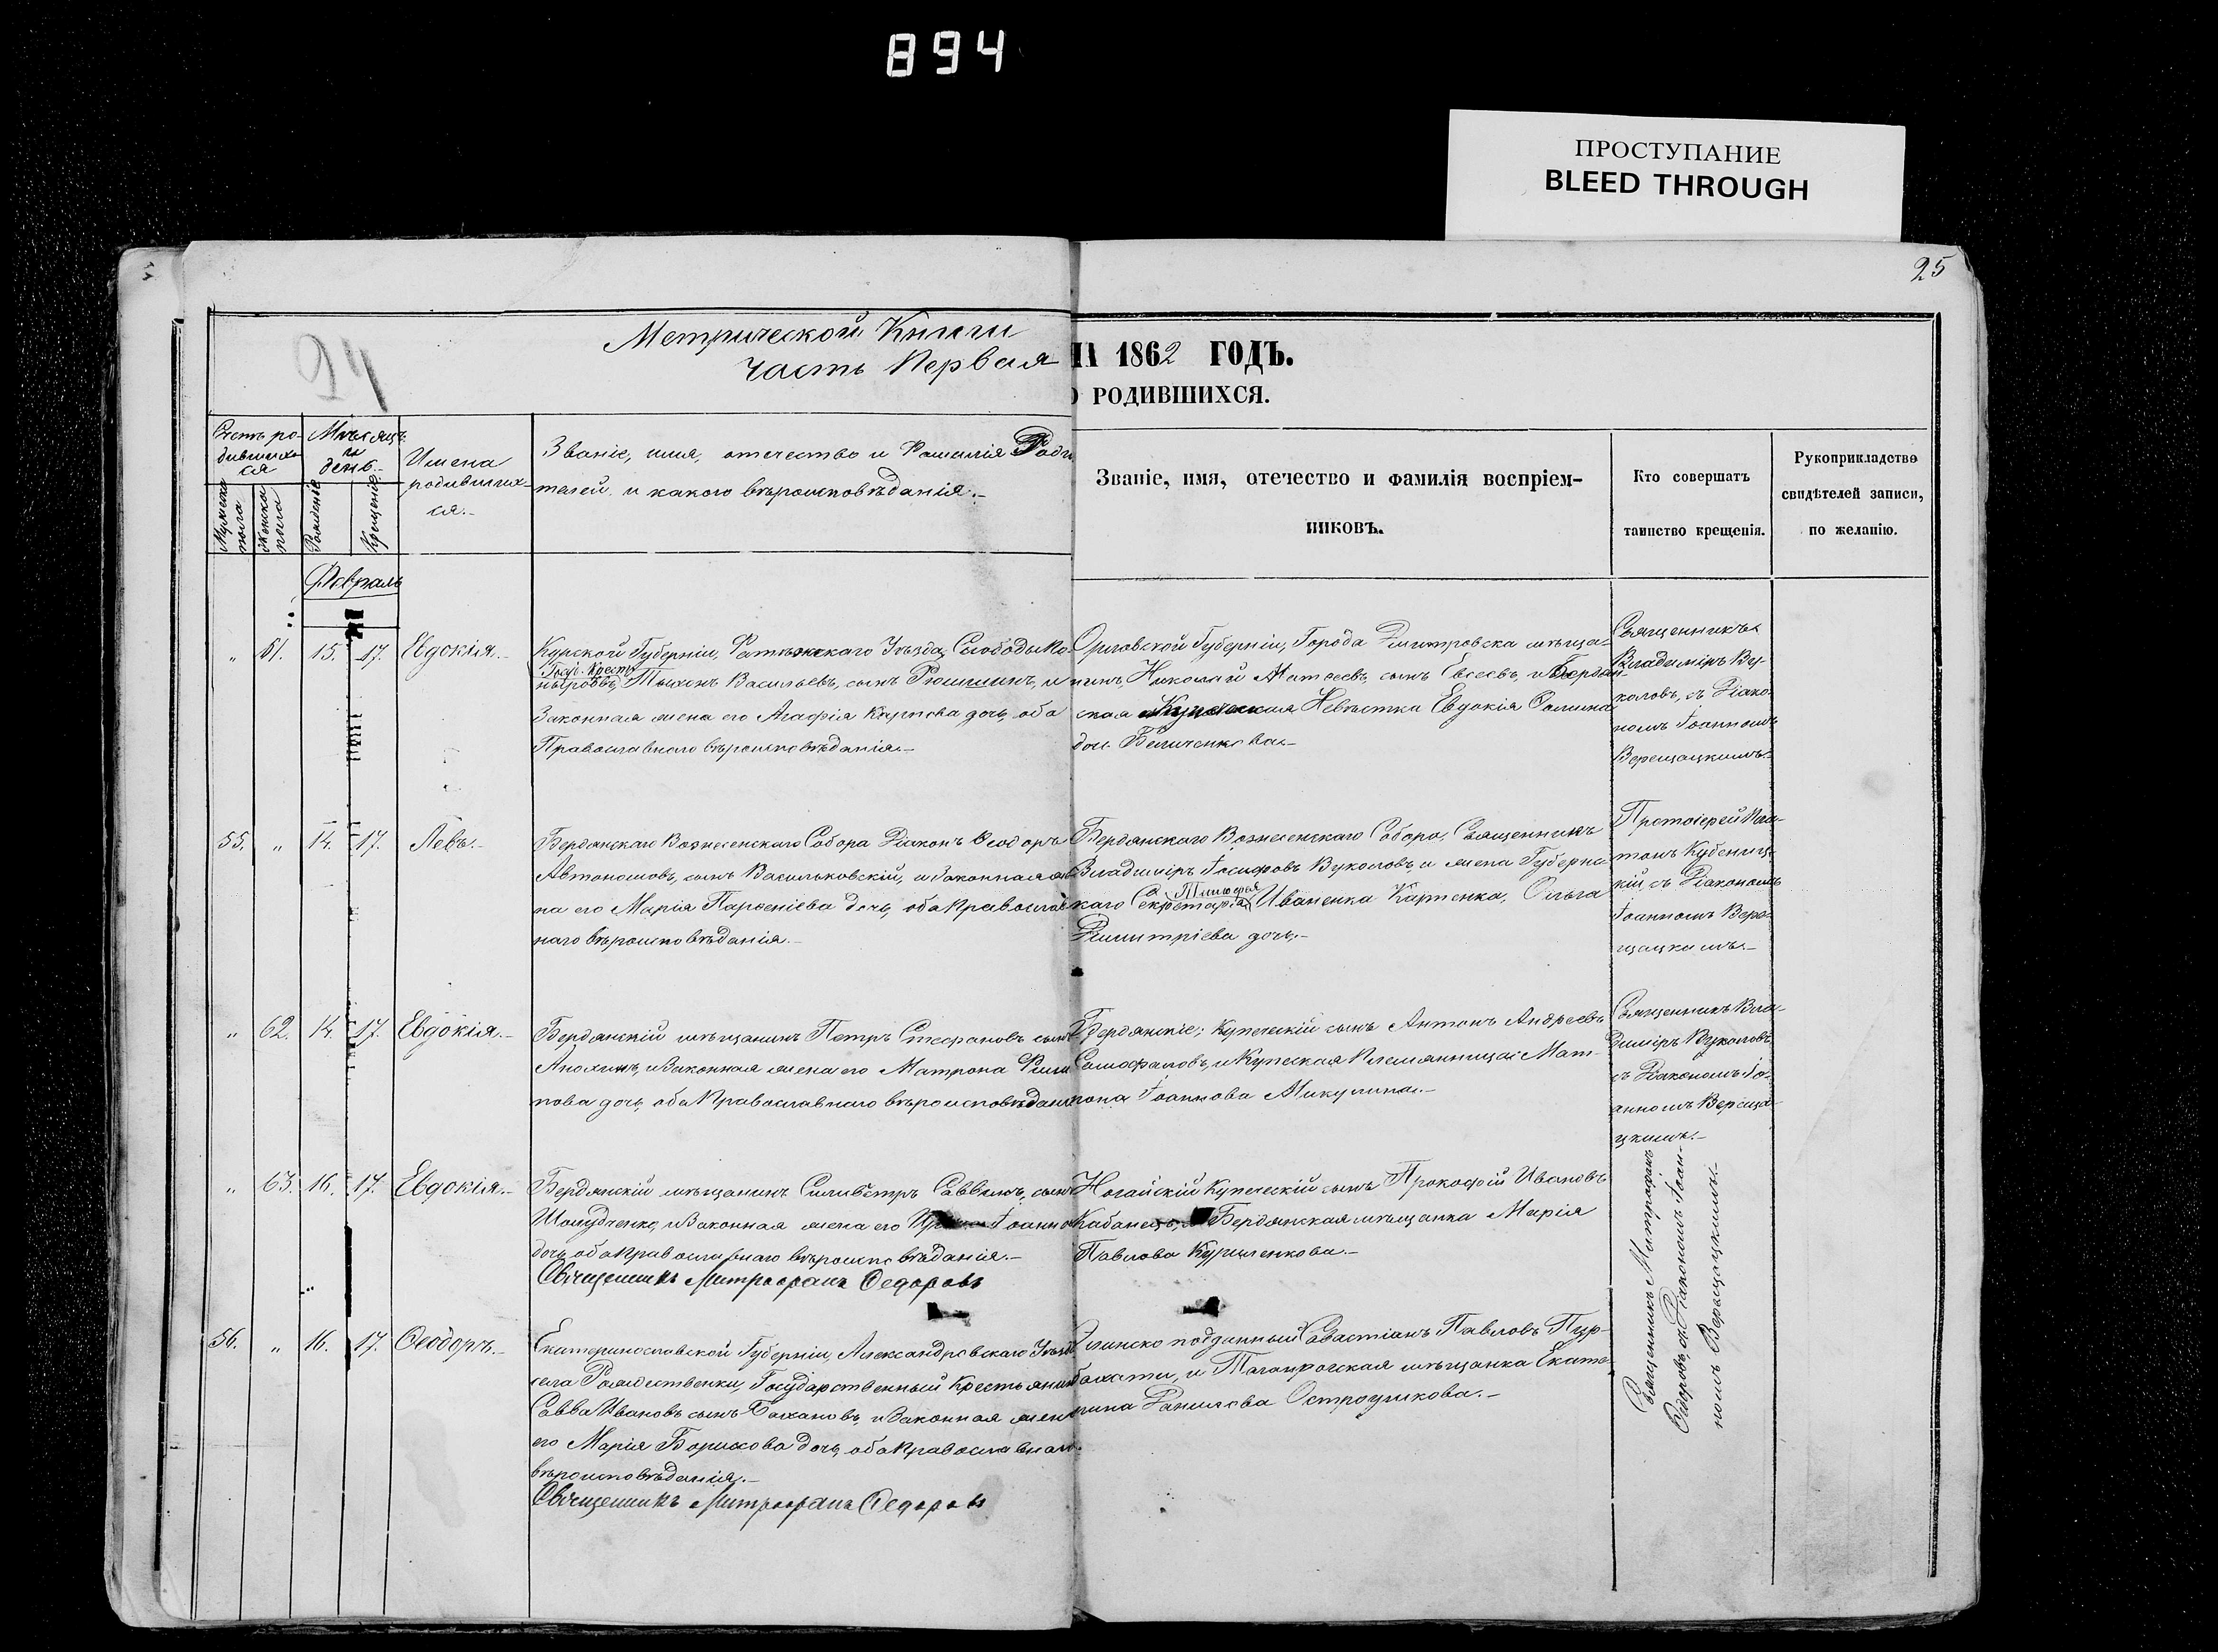 894
ПРОСТУПАНИЕ
BLEED THROUGH
25
24
Метрической Книги
часть Первая
1862 ГОДЪ.
РОДИВШИХСЯ.
Счетъ ро-
дивших-
ся
Мужеска
пола
Женска
пола
Мѣсяцъ
и
день.
Рожденіе
Крещеніе
Имена
родивших-
ся.
Званіе, имя, отечество и Фамилія Роди
телей, и какого вѣроисповѣданія.
Званіе, имя, отечество и фамилія воспріем-
никовъ.
Кто совершатъ
таинство крещенія.
Рукоприкладство
свидѣтелей записи,
по желанію.
Февраль
„ 61. 15. 17. Евдокія.
Курской Губерніи, Уѣзда, Слободы
Госуд. Крест.
Тихонъ Васильевъ, сынъ и
Законная жена его Агафія Карпова дочь, оба
Православнаго вѣроисповѣданія.
Орловской Губерніи, Города Дмитровска мѣща-
нинъ, Николай Матѳеевъ, сынъ Евсеевъ, и Бердян-
ская Купеческая Невѣстка Евдокія
дочь Беличенкова.
Священникъ
Владиміръ Ву-
коловъ, съ Діако-
номъ Іоанномъ
Верещацкимъ.
55. „ 14. 17. Левъ.
Бердянскаго Вознесенскаго Собора Діаконъ Ѳеодоръ
Автономовъ, сынъ Васильковскій, и Законная же
на его Марія Парѳеніева дочь, оба Православ
наго вѣроисповѣданія.
Бердянскаго Вознесенскаго Собора, Священникъ
Владиміръ Іосифовъ Вуколовъ, и жена Губернс
каго Секретаря Иваненка Карпенка, Ольга
Димитріева дочь.
Протоіерей Пла-
тонъ Кубениц-
кій, съ Діакономъ
Іоанномъ Вере-
щацкимъ.
„ 62. 14. 17. Евдокія.
Бердянскій мѣщанинъ Петръ Стефановъ сынъ
Анохинъ, и Законная жена его Матрона Филип
пова дочь, оба Православнаго вѣроисповѣданія
Бердянскіе; Купеческій сынъ Антонъ Андреевъ
и Купеческая Племянница Мат-
рона Іоаннова Микулина.
Священникъ Вла-
диміръ Вуколовъ
съ Діакономъ Іо-
анномъ Вереща-
цкимъ.
„ 63. 16. 17. Евдокія.
Бердянскій мѣщанинъ Силивестръ Саввинъ, сынъ
Шолудченко, и Законная жена его Іоанно
дочь, оба Православнаго вѣроисповѣданія.
Священникъ Митрофанъ Ѳедоровъ
Ногайскій Купеческій сынъ Прокофій Ивановъ
Кабанецъ, и Бердянская мѣщанка Марія
Павлова Куриленкова.
56. „ 16. 17. Ѳеодоръ.
Екатеринославской Губерніи, Александровскаго Уѣзда
села Рождественки, Государственный Крестьянинъ
Савва Ивановъ сынъ Бахановъ, и Законная жена
его Марія Борисова дочь, оба Православнаго
вѣроисповѣданія.
Священникъ Митрофанъ Ѳедоровъ
подданный Севастіанъ Павловъ
и Таганрогская мѣщанка Екате-
рина Данилова Остроухова.
Священникъ Митрофанъ
Ѳедоровъ, съ Діакономъ Іоан-
номъ Верещацкимъ.